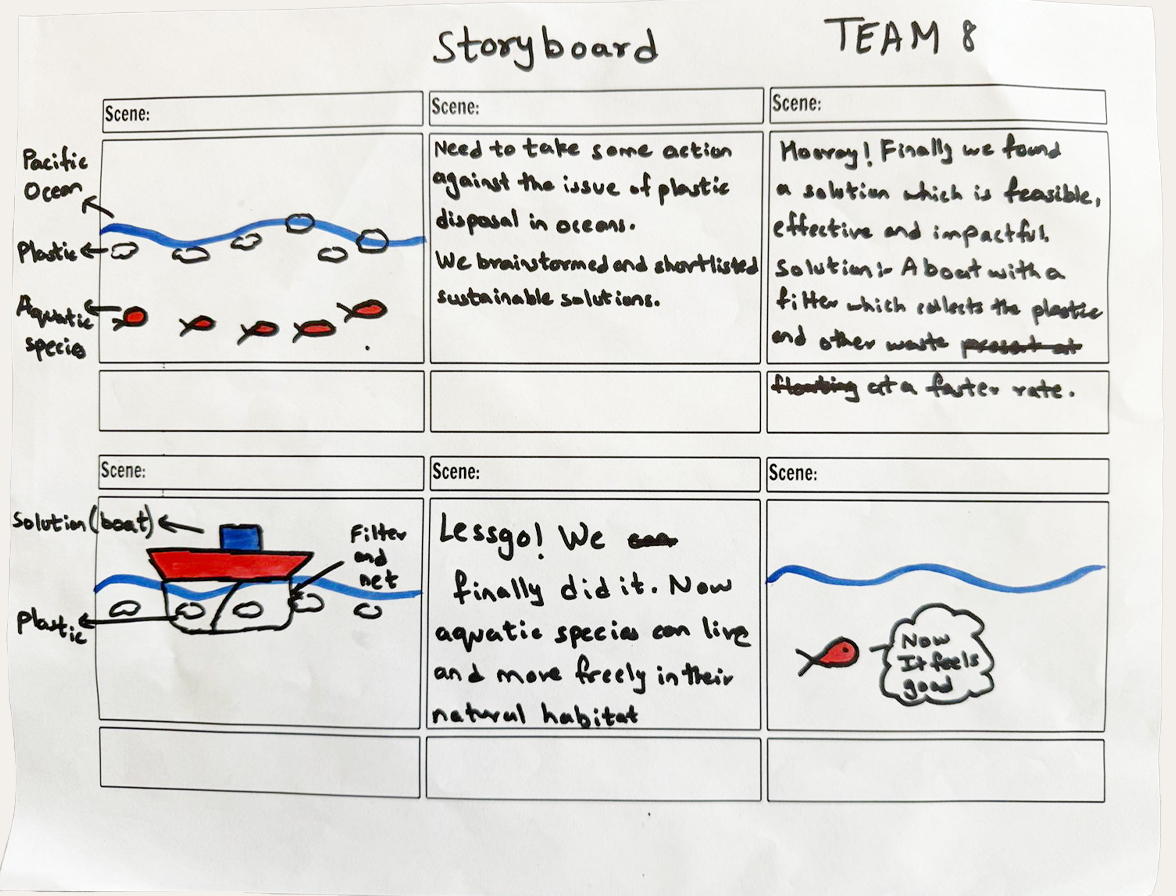 Storyboard
TEAM 8
Scene:
Scene:
Scene:
Pacific
Ocean
Plastic
Aquatic
species
Need to take some action
against the issue of plastic
disposal in oceans.
We brainstormed and shortlisted
sustainable solutions.
Hooray! Finally we found
a solution which is feasible,
effective and impactful.
Solution:- A boat with a
filter which collects the plastic
and other waste present at
floating at a faster rate.
Scene:
Scene:
Scene:
Solution (boat)
Filter
and
net
Plastic
Lessgo! We can
finally did it. Now
aquatic species can live
and move freely in their
natural habitat
Now
It feels
good